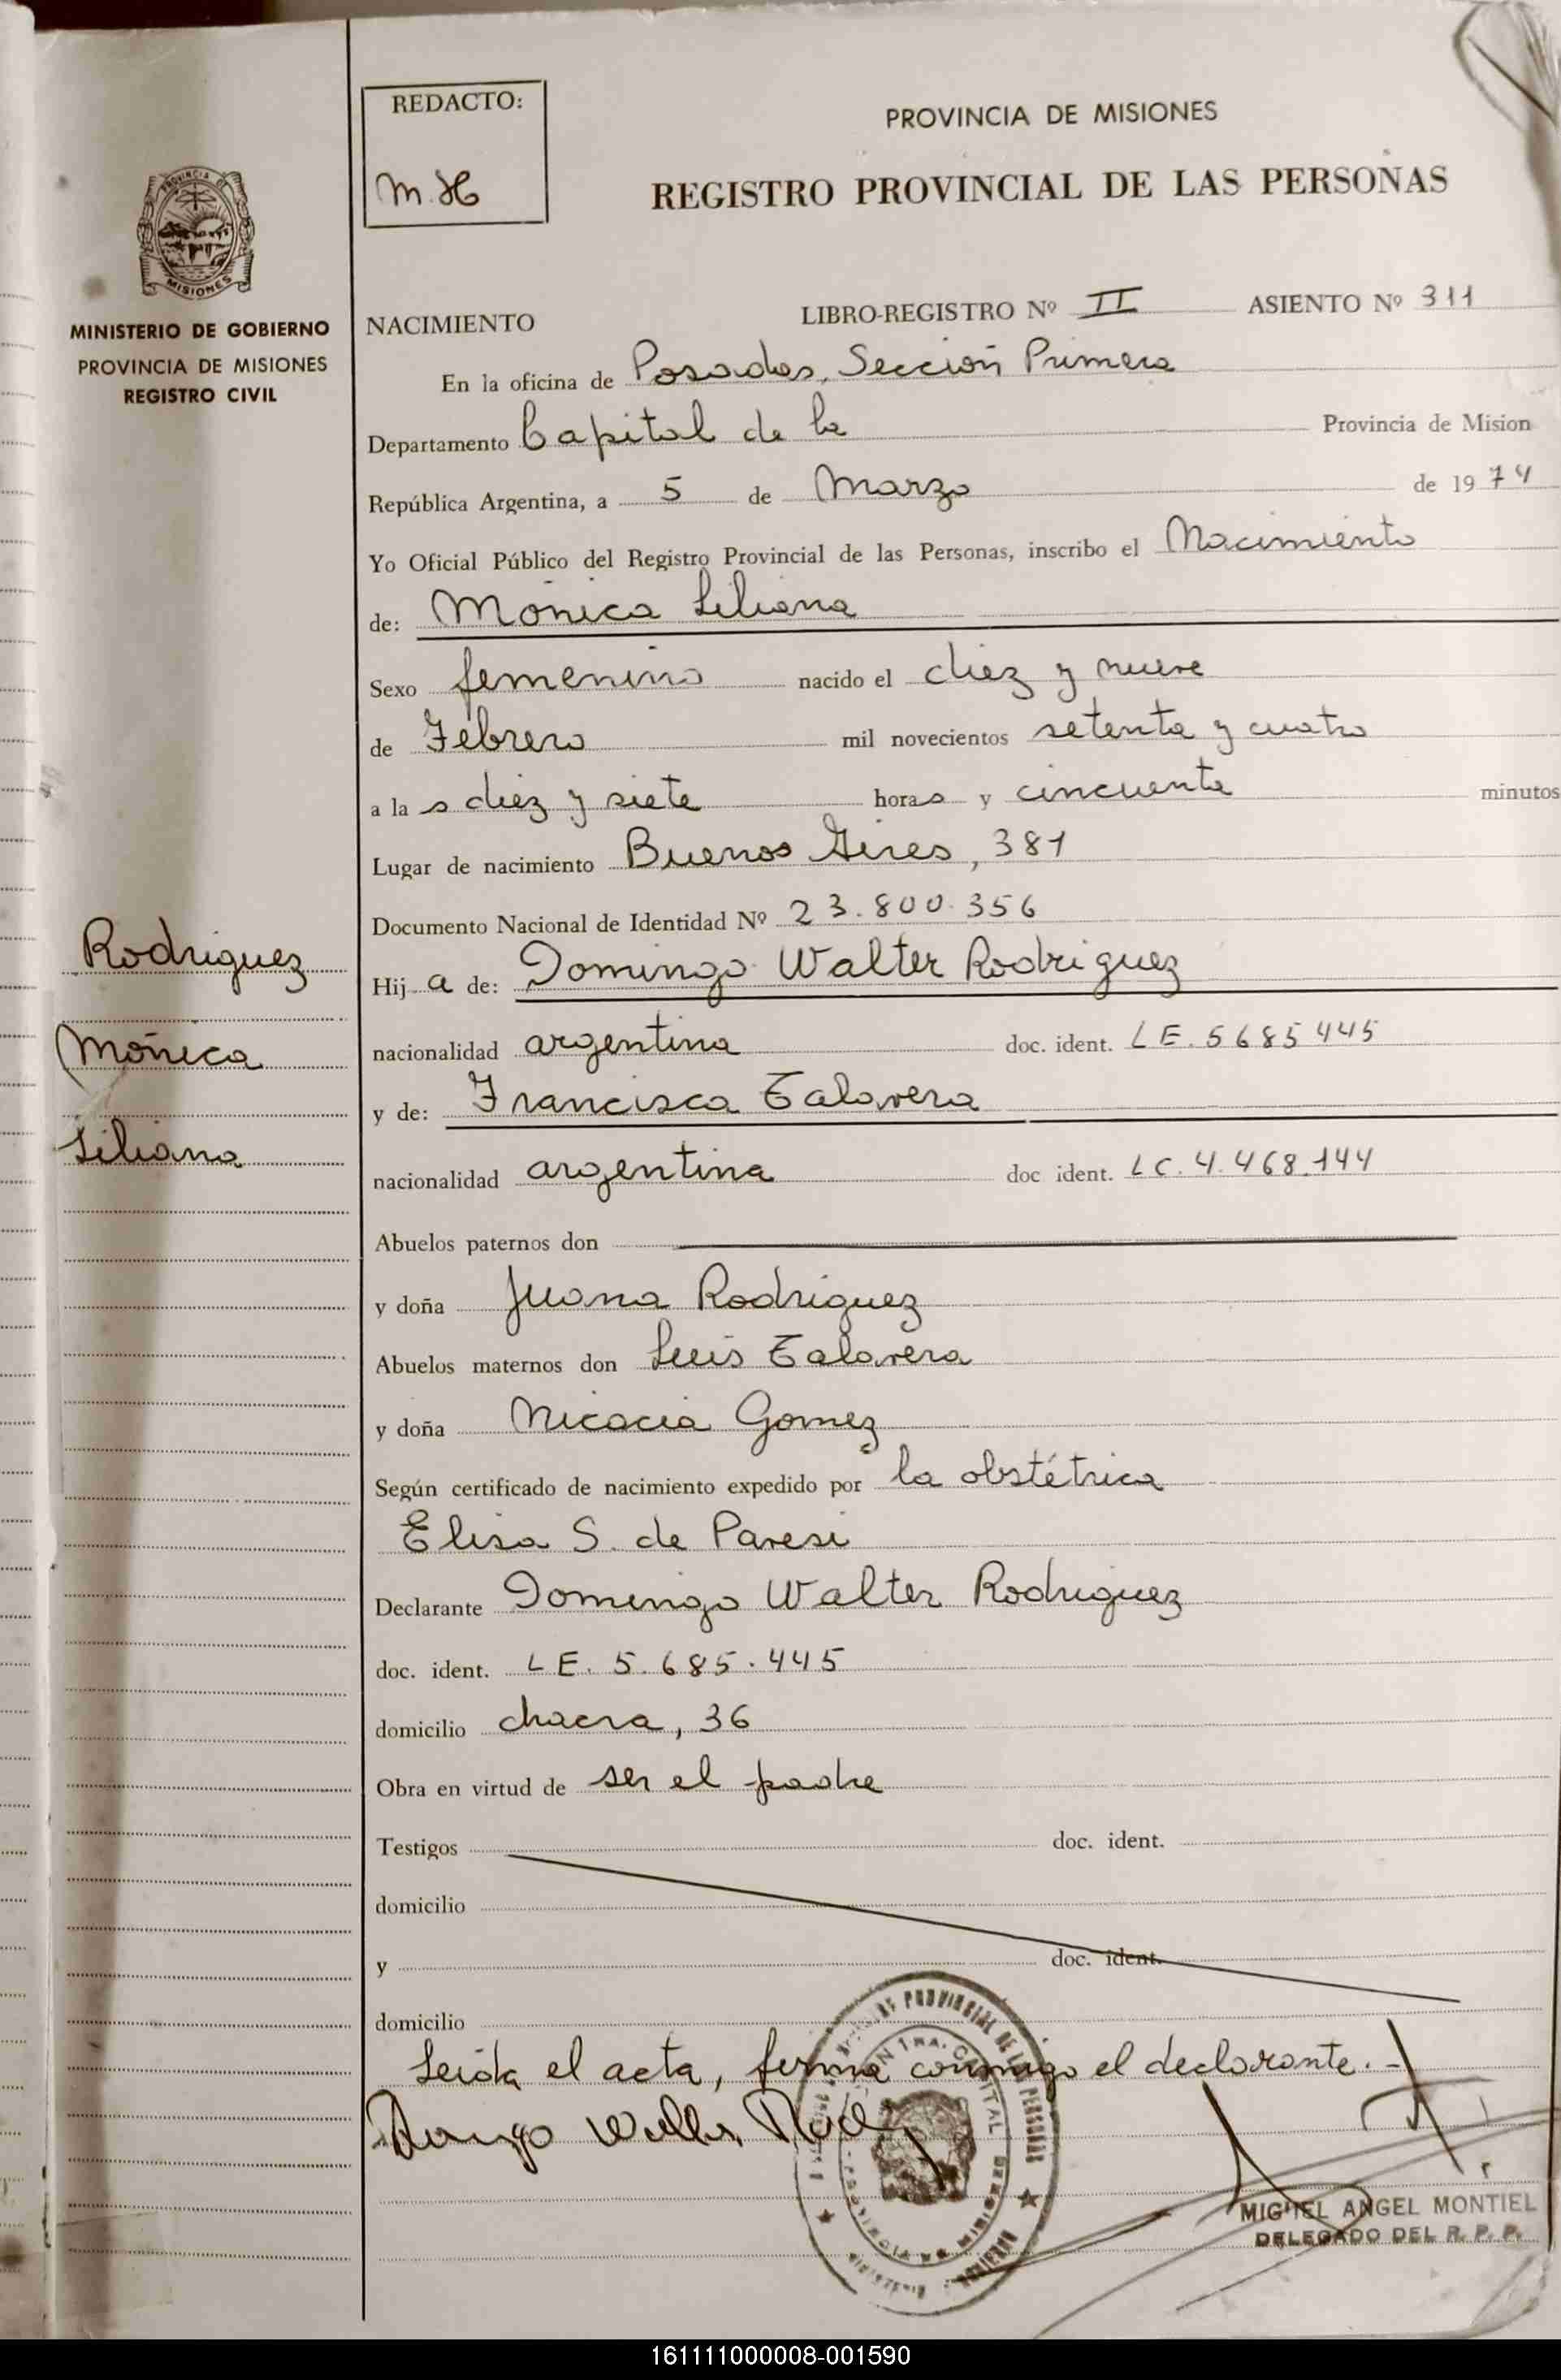 REDACTO:
M. H
PROVINCIA DE MISIONES
REGISTRO PROVINCIAL DE LAS PERSONAS
PROVINCIA DE
MISIONES
MINISTERIO DE GOBIERNO
PROVINCIA DE MISIONES
REGISTRO CIVIL
NACIMIENTO LIBRO-REGISTRO Nº II ASIENTO Nº 311
En la oficina de Posadas, Sección Primera
Departamento Capital de la Provincia de Mision
República Argentina, a 5 de Marzo de 1974
Yo Oficial Público del Registro Provincial de las Personas, inscribo el Nacimiento
de: Mónica Liliana
Sexo femenino nacido el diez y nueve
de Febrero mil novecientos setenta y cuatro
a la s diez y siete horas y cincuenta minutos
Lugar de nacimiento Buenos Aires, 381
Documento Nacional de Identidad Nº 23.800.356
Rodriguez
Mónica
Liliana
Hija de: Domingo Walter Rodriguez
nacionalidad argentina doc. ident. LE. 5685445
y de: Francisca Talavera
nacionalidad argentina doc ident. LC. 4.468.144
Abuelos paternos don
y doña Juana Rodriguez
Abuelos maternos don Luis Talavera
y doña Nicacia Gomez
Según certificado de nacimiento expedido por la obstétrica
Elisa S. de Paresi
Declarante Domingo Walter Rodriguez
doc. ident. LE. 5.685.445
domicilio chacra, 36
Obra en virtud de ser el padre
Testigos doc. ident.
domicilio
y doc. ident.
domicilio
Leída el acta, firma conmigo el declarante. -
MIGUEL ANGEL MONTIEL
DELEGADO DEL R. P. P.
161111000008-001590